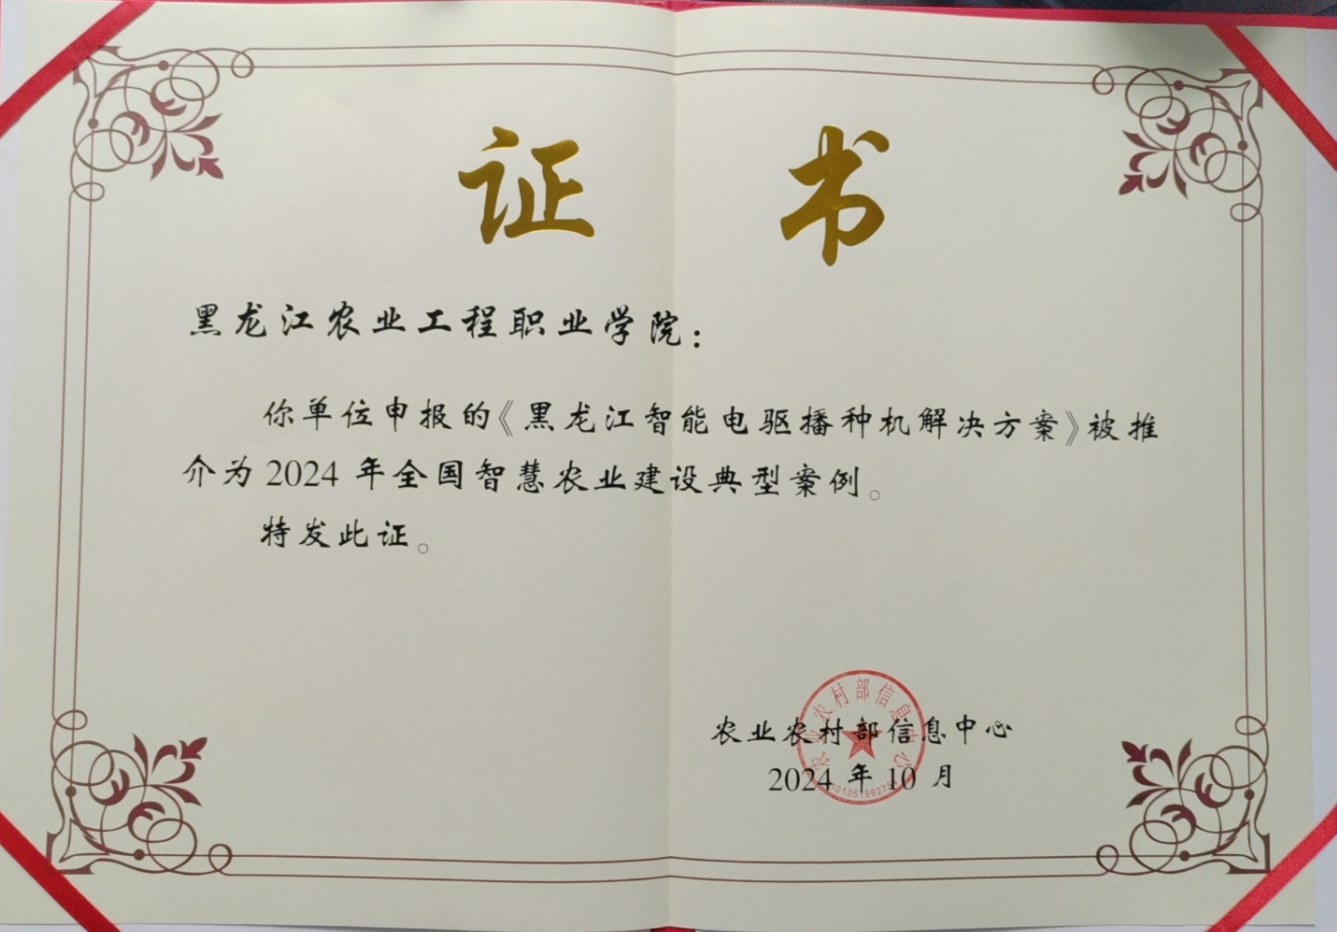 证书
黑龙江农业工程职业学院：
你单位申报的《黑龙江智能电驱播种机解决方案》被推
介为2024年全国智慧农业建设典型案例。
特发此证。
农业农村部信息中心
农业农村部信息中心
2024年10月